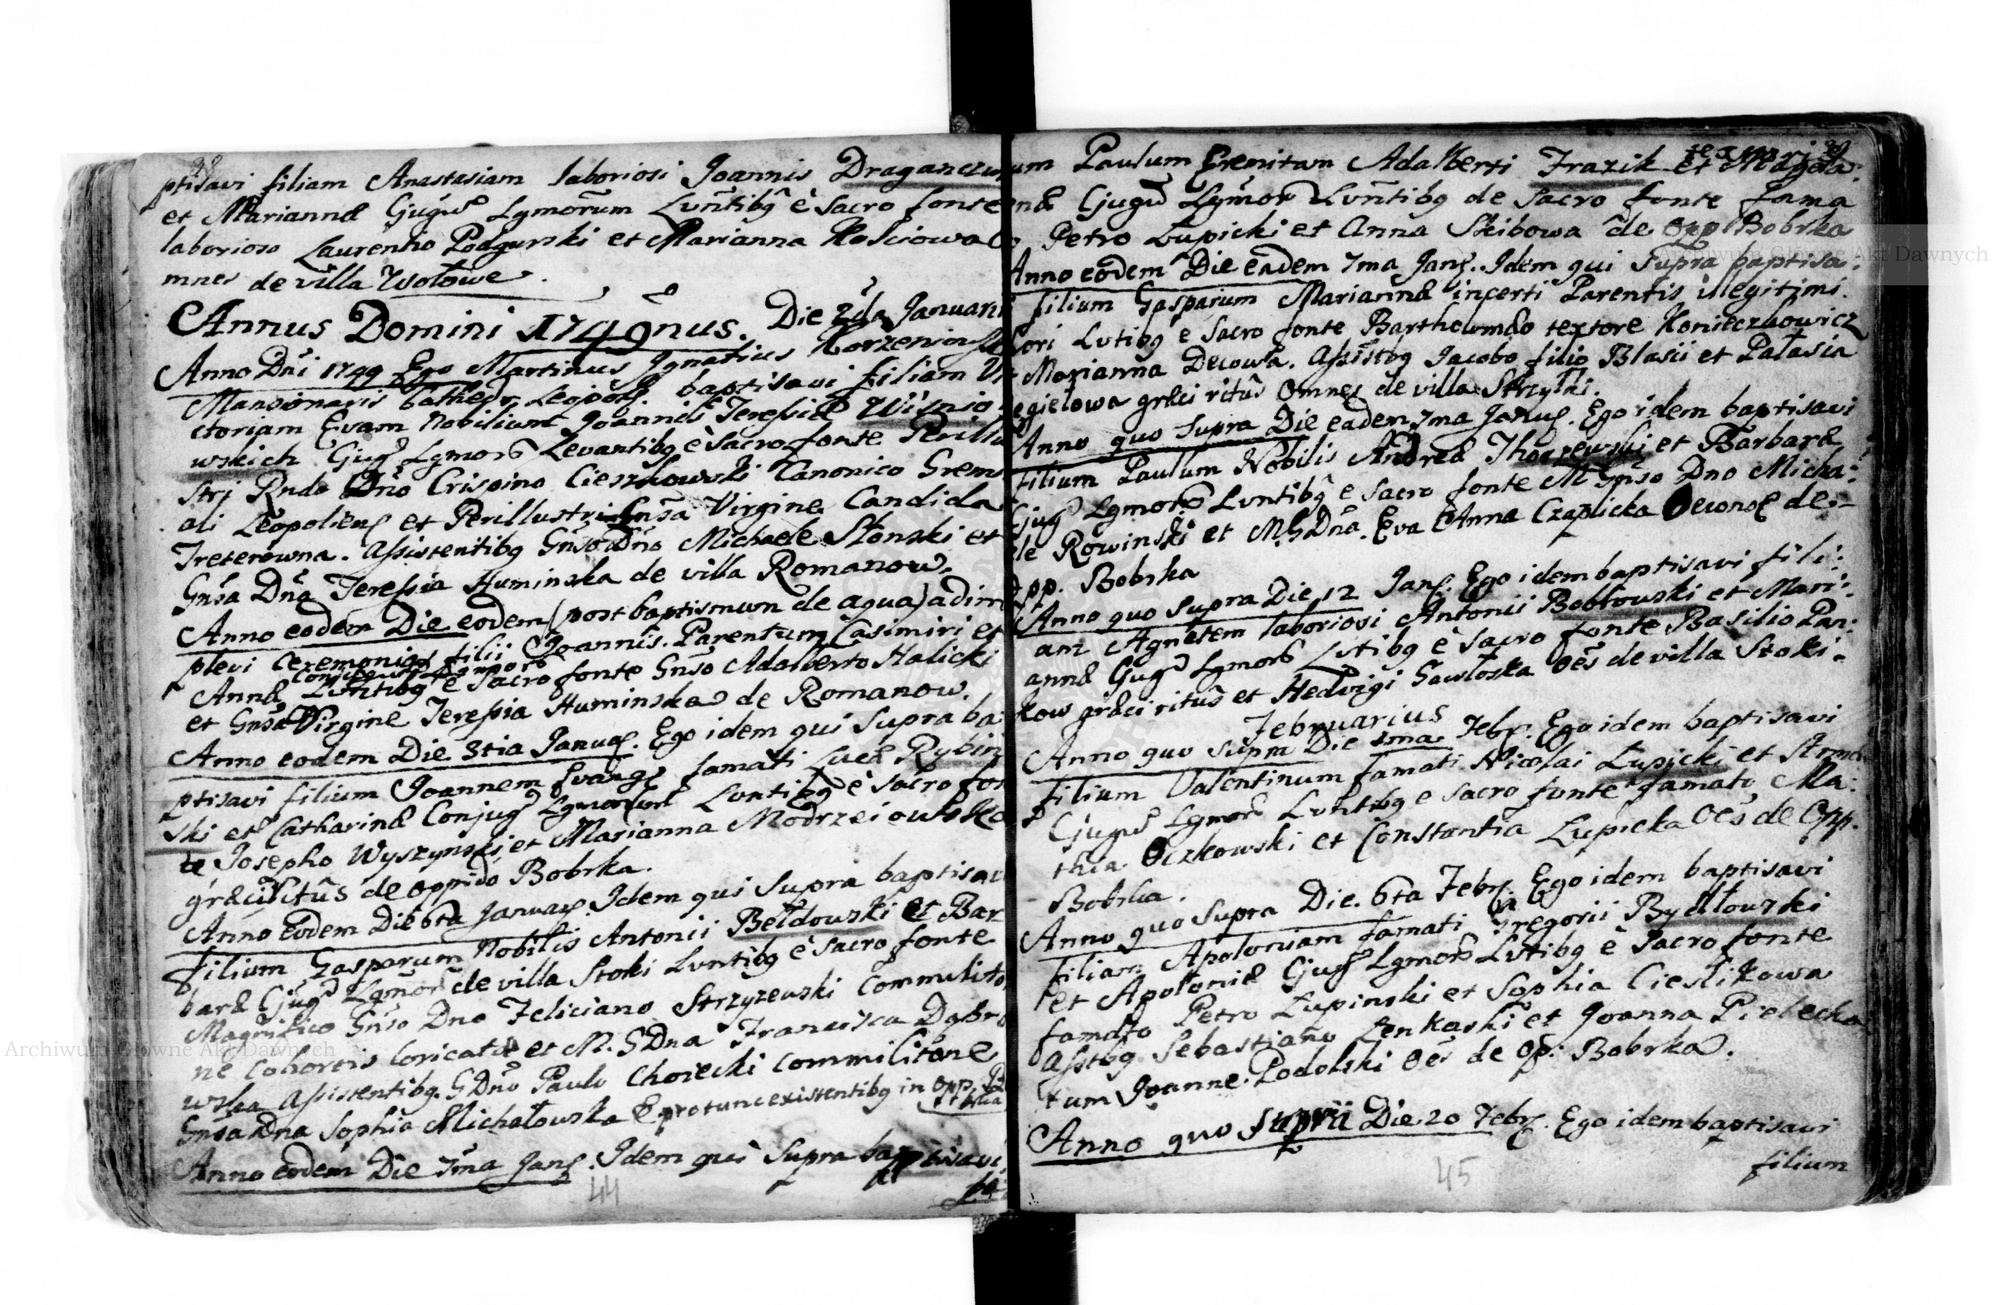 ptisavi filiam Anastasiam laboriosi Joannis Draganczu
et Mariannæ Cjugũ Lgmorum Lvntibg è Sacro fonte
laborioso Laurentio Podgurski et Marianna Kosciowa O
mnes de villa Wołowe.
Annus Domini 1749nus. Die 2da Januarii
Anno Dñi 1749 Ego Martinus Ignatius Korzeniows
Mansionaris Cathedr. Leopol. baptisavi filiam Vi
ctoriam Evam Nobilium Joannis Teressiæ Wisnio
wskich Cjug Lgmorũ Levantibg è Sacro fonte Perillu
stri Rndo Dño Crispino Cieszkowski Canonico Grem
ali Leopoliens et Perillustri Gnsa Virgine Candida
Treterowna. Assistentibg Gnso Dño Michaele Słonski et
Gnsa Dña Teressia Huminska de villa Romanow.
Anno eodem Die eodem (post baptismum de aqua) adim
plevi Ceremonias filii Joannis. Parentum Casimiri et
Conjugum Lgmorũ
Annæ Lvntibg è Sacro fonte Gnso Adalberto Halicki
et Gnsa Virgine Teressia Huminska de Romanow.
Anno eodem Die 3tia Januar. Ego idem qui Supra ba
ptisavi filium Joannem Evang famati Lucæ Rybin
ski et Catharinæ Conjug Lgmorum Lvntibg è Sacro fon
te Josepho Wyszynski et Marianna Modrzeiowska
græci ritus de oppido Bobrka.
Anno eodem Die 6ta Januar. Idem qui Supra baptisavi
filium Gasparum Nobilis Antonii Bełdowski et Bar
baræ Cjug Lgmorũ de villa Stoki Lvntibg è Sacro fonte
Magnifico Gnso Dno Feliciano Strzyzewski Commilito
ne Cohortis Loricatæ et M. G Dna Francisca Dąbro
wska Assistentibg. G Dño Paulo Choiecki Commilitone
Gnsa Dna Sophia Michałowska E protunc existentibg in Opp.
Anno eodem Die 7ma Jan. Idem qui Supra baptisavi
44
um Paulum Eremitam Adalberti Frazik et Magda:
næ Cjugũ Lgmorũ Lvntibg de Sacro fonte fama
Petro Łupicki et Anna Skibowa de Opp Bobrka
Anno eodem Die eadem 7ma Jan. Idem qui Supra baptisa:
filium Gasparum Mariannæ incerti Parentis illegitimi.
tori Lvtibg è Sacro fonte Bartholomæo textore Konieczkowicz
Marianna Decowa. Assistbg Jacobo filio Blasii et Palasia
egielowa græci ritũs Omnes de villa Strzylki.
Anno quo Supra Die eadem 7ma Janu. Ego idem baptisavi
filium Paulum Nobilis Andreæ Thorzewski et Barbaræ
Cjug Lgmorũ Lvntibg è Sacro fonte M Gnso Dno Micha:
le Rowinski et M. G Dña. Eva Anna Czaplicka Oecono de
opp. Bobrka
Anno quo Supra Die 12 Jan. Ego idem baptisavi fili:
am Agnetem laboriosi Antonii Bobrowski et Mari:
annæ Cjug Lgmorũ Lvtibg è Sacro fonte Basilio Pan:
kow græci ritũs et Hedvigi Gawłoska Oẽs de villa Stoki.
Februarius
Anno quo supra Die 1ma Febr. Ego idem baptisavi
filium Valentinum famati Nicolai Łupicki et
Cjugũ Lgmorũ Lvntibg è Sacro fonte famato Ma:
thia Oczkowski et Constantia Łupicka Oẽs de Opp.
Bobrka.
Anno quo Supra Die. 6ta Febr. Ego idem baptisavi
filiam Apoloniam famati Gregorii Bydłowski
et Apoloniæ Cjug Lgmorũ Lvtibg è Sacro fonte
famato Petro Łupinski et Sophia Cieslikowa
Asstbg Sebastiano Lenkaski et Joanna Piebecka
tum Joanne Podolski Oẽs de Op: Bobrka.
Anno quo Supra Die 20 Febr. Ego idem baptisavi
filium
45
Archiwum Główne Akt Dawnych
Archiwum Główne Akt Dawnych